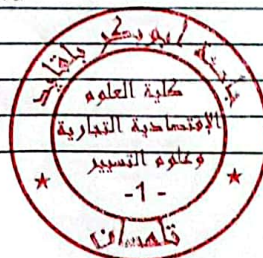 جامعة أبوبكر بلقايد
كلية العلوم
الإقتصادية التجارية
وعلوم التسيير
-1-
تلمسان